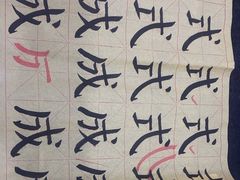 式式式式
式式式式
成成成成
成成成